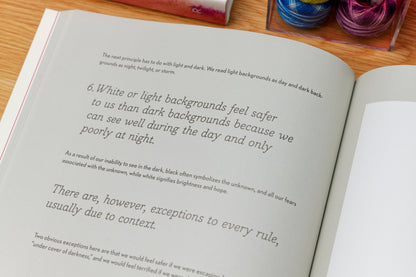 The next principle has to do with light and dark. We read light backgrounds as day and dark back-
grounds as night, twilight, or storm.
6. White or light backgrounds feel safer
to us than dark backgrounds because we
can see well during the day and only
poorly at night.
As a result of our inability to see in the dark, black often symbolizes the unknown, and all our fears
associated with the unknown, while white signifies brightness and hope.
There are, however, exceptions to every rule,
usually due to context.
Two obvious exceptions here are that we would feel safer if we were
"under cover of darkness," and we would feel terrified if we were